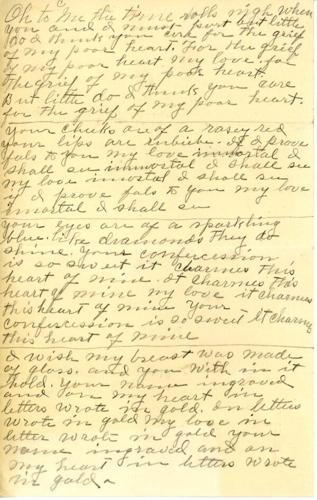 Oh to me the time rolls nigh when
you and I must part but little
do I think you care for the grief
of my poor heart. For the grief
of my poor heart my love. for
the grief of my poor heart.
But little do I thinks you care
for the grief of my poor heart.
your cheeks are of a rosey red
your lips are rubiebe. If I prove
fals to you my love immortal I
shall see immortal I shall see
my love imortal I shall see
if I prove fals to you my love
imortal I shall see
your eyes are of a sparkling
blue. like diamonds they do
shine. your confercession
is so sweet it charmes this
heart of mine. it charmes this
heart of mine my love it charmes
this heart of mine your
confercession is so sweet it charms
this heart of mine
I wish my breast was made
of glass. and you with in it
hold. your name ingraved
and on my heart in
letters wrote in gold. in letters
wrote in gold my love in
letter wrote in gold your
name ingraved and on
my heart in letters wrote
in gold